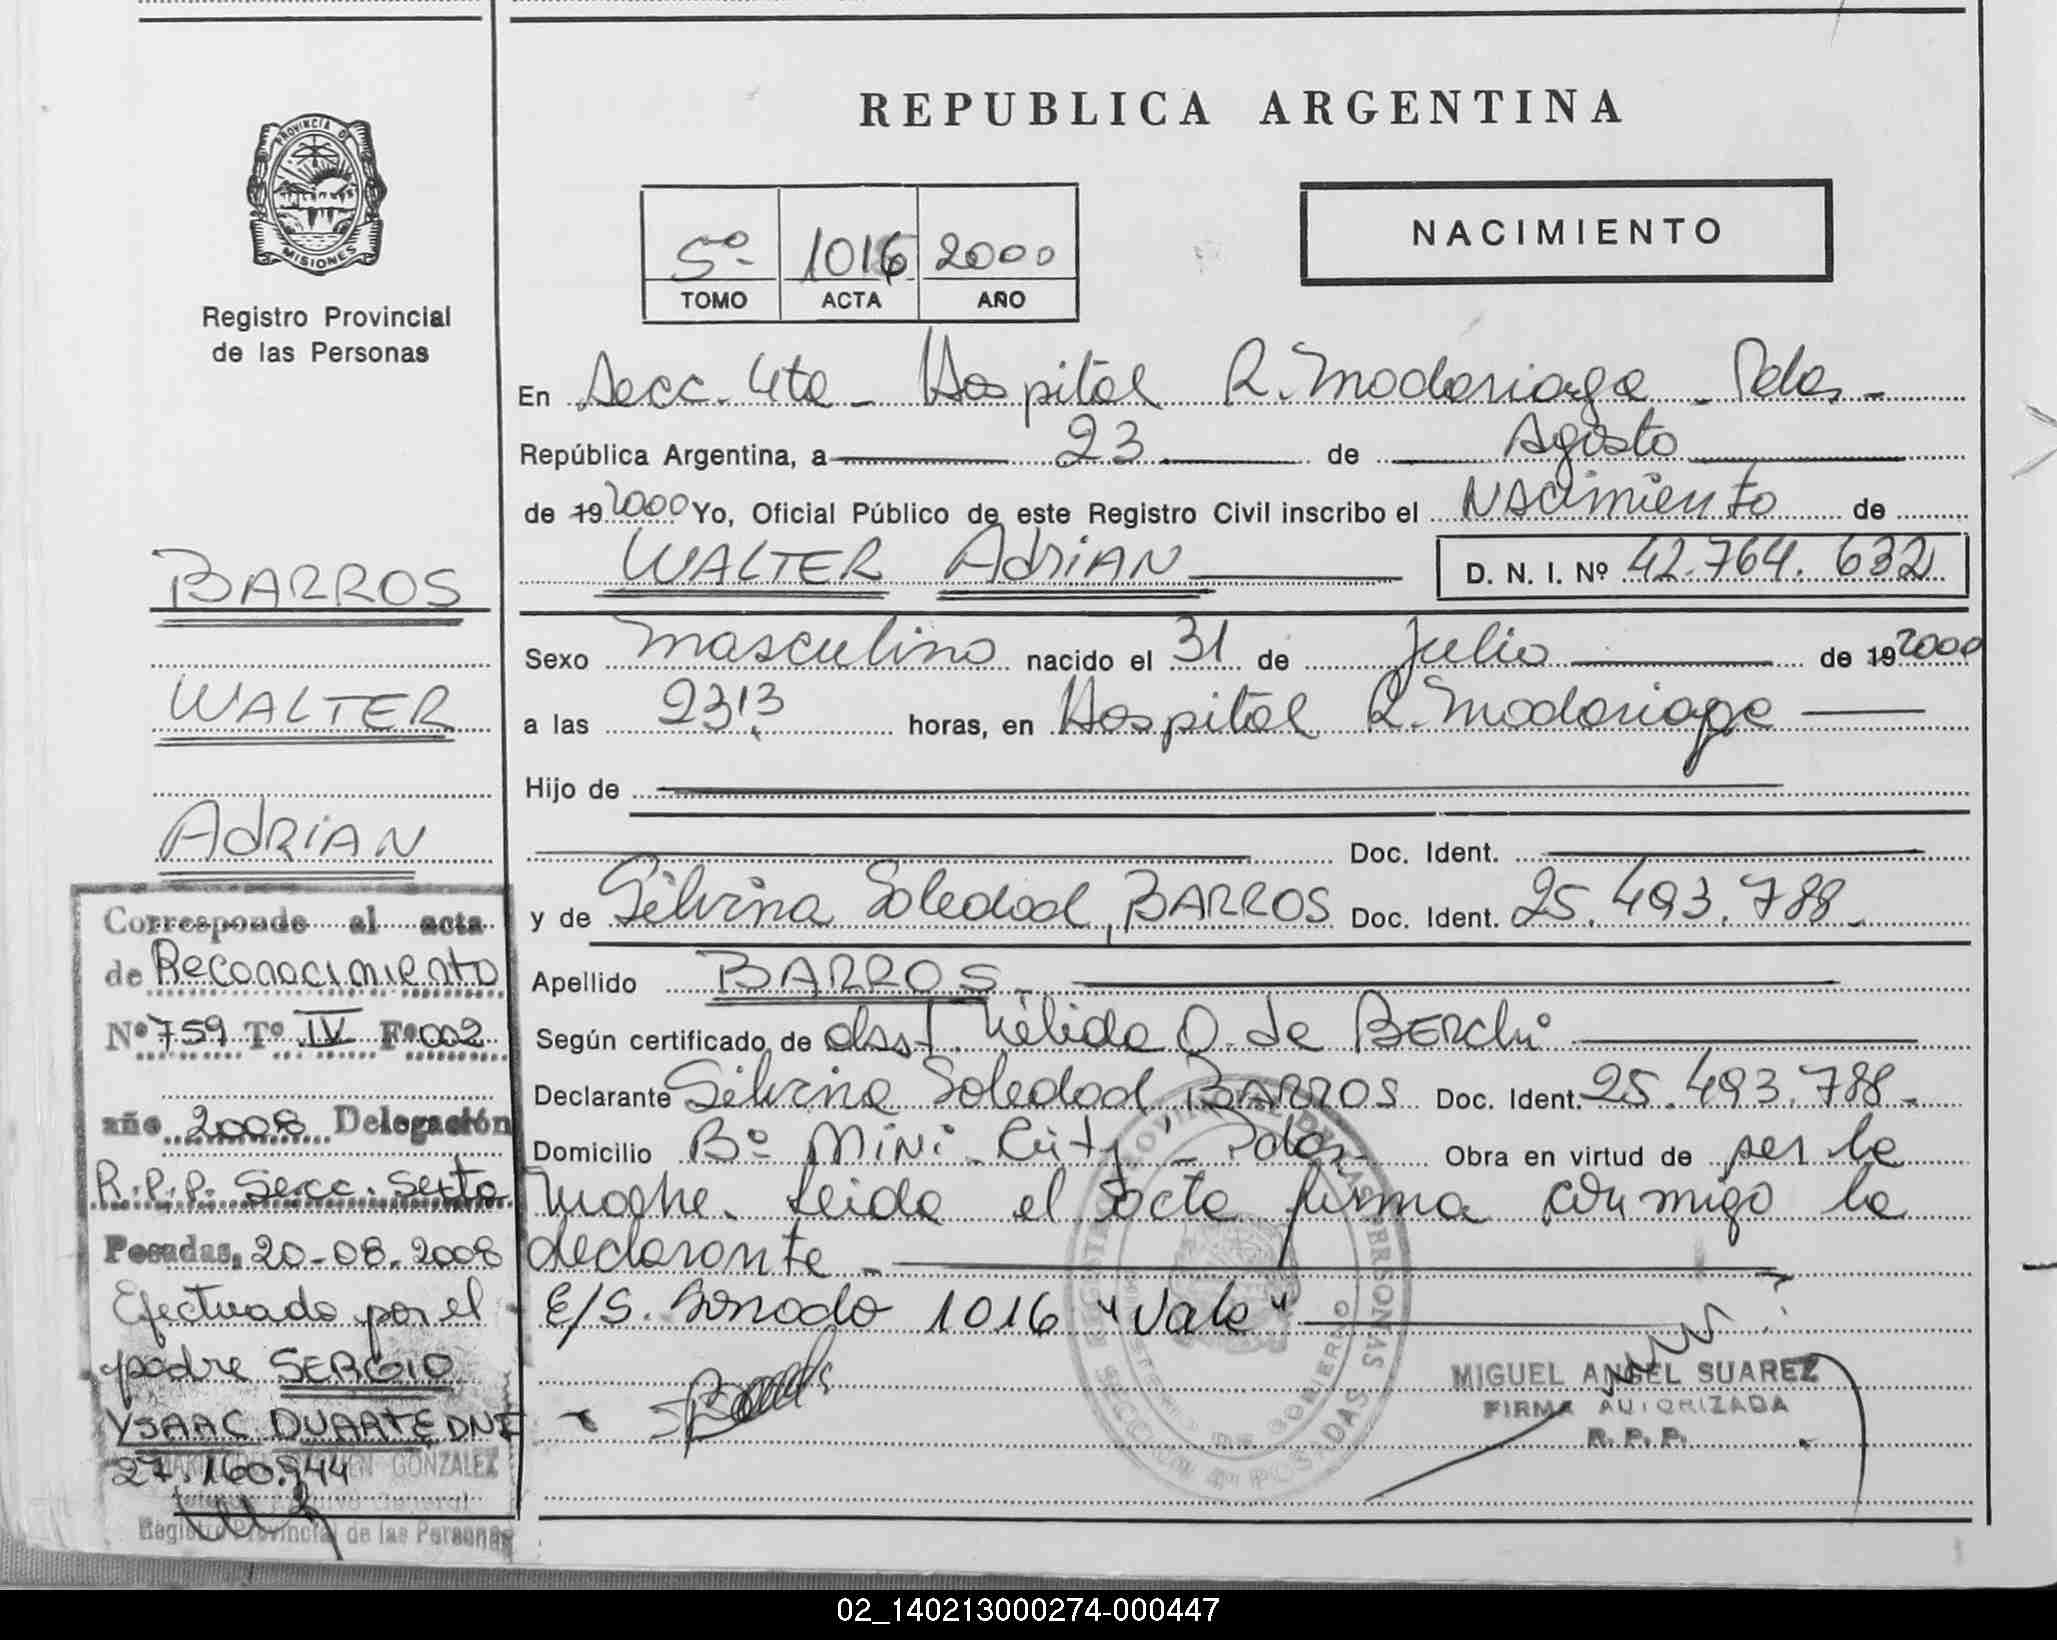 REPUBLICA ARGENTINA
PROVINCIA DE
MISIONES
Registro Provincial
de las Personas
5º 1016 2000
TOMO ACTA AÑO
NACIMIENTO
En Secc. 4ta - Hospital R. Madariaga - Pdas -
República Argentina, a 23 de Agosto
de 19 2000 Yo, Oficial Público de este Registro Civil inscribo el Nacimiento de
WALTER AdRiAN D. N. I. Nº 42.764.632
Sexo masculino nacido el 31 de Julio de 19 2000
a las 23,13 horas, en Hospital R. Madariaga
Hijo de
Doc. Ident.
y de Silvina Soledad, BARROS Doc. Ident. 25.493.788.
Apellido BARROS
Según certificado de Nélida O. de BERchi
Declarante Silvina Soledad BARROS Doc. Ident. 25.493.788.
Domicilio Bº Mini City - Pdas. Obra en virtud de ser la
madre. Leida el acta firma conmigo la
declarante.
E/S. Borrado 1016 "Vale"
MIGUEL ANGEL SUAREZ
FIRMA AUTORIZADA
R. P. P.
BARROS
WALTER
AdRiAN
Corresponde al acta
de Reconocimiento
Nº 759 Tº IV Fº 002
año 2008 Delegación
R.P.P. Secc. Sexta
Posadas, 20-08-2008
Efectuado por el
padre SERGIO
YSAAC DUARTE DNI
27.160.944
GONZALEZ
Registro Provincial de las Personas
02_140213000274-000447